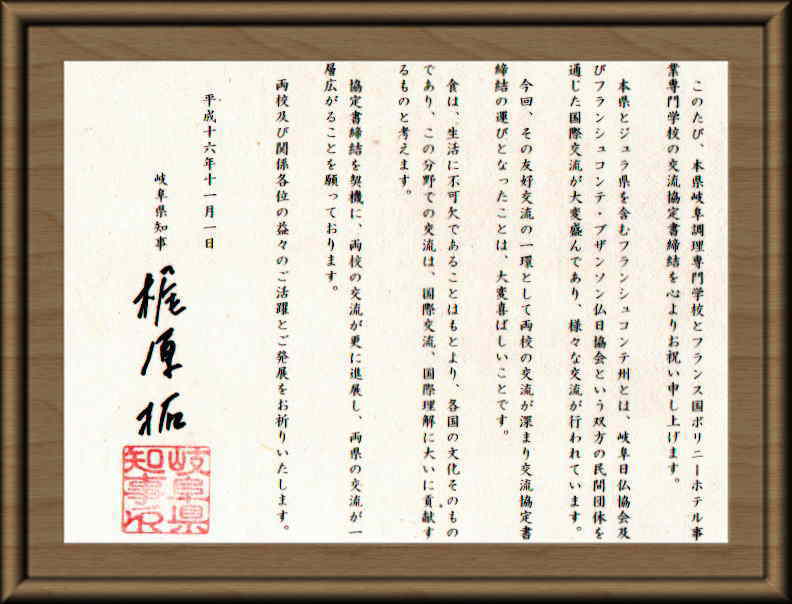 このたび、本県岐阜調理専門学校とフランス国ポリニーホテル事
業専門学校の交流協定書締結を心よりお祝い申し上げます。
本県とジュラ県を含むフランシュコンテ州とは、岐阜日仏協会及
びフランシュコンテ・ブザンソン仏日協会という双方の民間団体を
通じた国際交流が大変盛んであり、様々な交流が行われています。
今回、その友好交流の一環として両校の交流が深まり交流協定書
締結の運びとなったことは、大変喜ばしいことです。
食は、生活に不可欠であることはもとより、各国の文化そのもの
であり、この分野での交流は、国際交流、国際理解に大いに貢献す
るものと考えます。
協定書締結を契機に、両校の交流が更に進展し、両県の交流が一
層広がることを願っております。
両校及び関係各位の益々のご活躍とご発展をお祈りいたします。
平成十六年十一月一日
岐阜県知事
梶原拓
岐阜県
知事之印